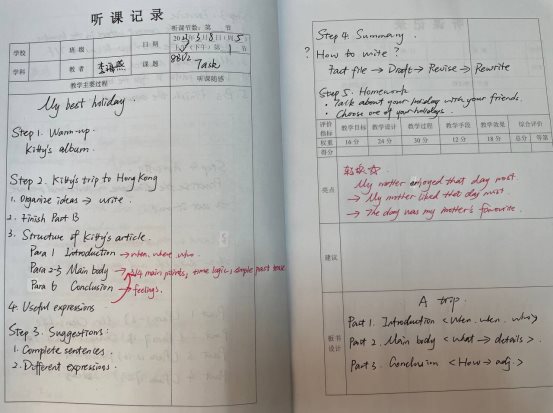 听课记录
听课节数：第 节
学校 班级 日期 2023年3月8日（周5）
上午（下午）第1节
学科 教者 课题 8BU2 Task
教学主要过程 听课随感
My best holiday.
Step 1. Warm-up.
Kitty's album.
Step 2. Kitty's trip to Hong Kong
1. Organize ideas → write.
2. Finish Part B
3. Structure of Kitty's article.
Para 1 Introduction → when. where. who.
Para 2-5 Main body → 3/4 main points, time logic, simple past tense
Para 6 Conclusion → feelings.
4. Useful expressions
Step 3. Suggestions:
1. Complete sentences.
2. Different expressions.
Step 4. Summary.
? How to write?
Fact file → Draft → Revise → Rewrite
Step 5. Homework
• Talk about your holiday with your friends.
• Choose one of your holidays.
评价指标 教学目标 教学设计 教学过程 教学手段 教学效果 综合评价
权重 16分 24分 30分 12分 18分 总分 等第
得分
亮点
My mother enjoyed that day most.
→ My mother liked that day most.
→ The day was my mother's favourite.
建议
板书设计
A trip.
Part 1. Introduction <When. when. who>
Part 2. Main body <what → details>.
Part 3. Conclusion <How → adj.>